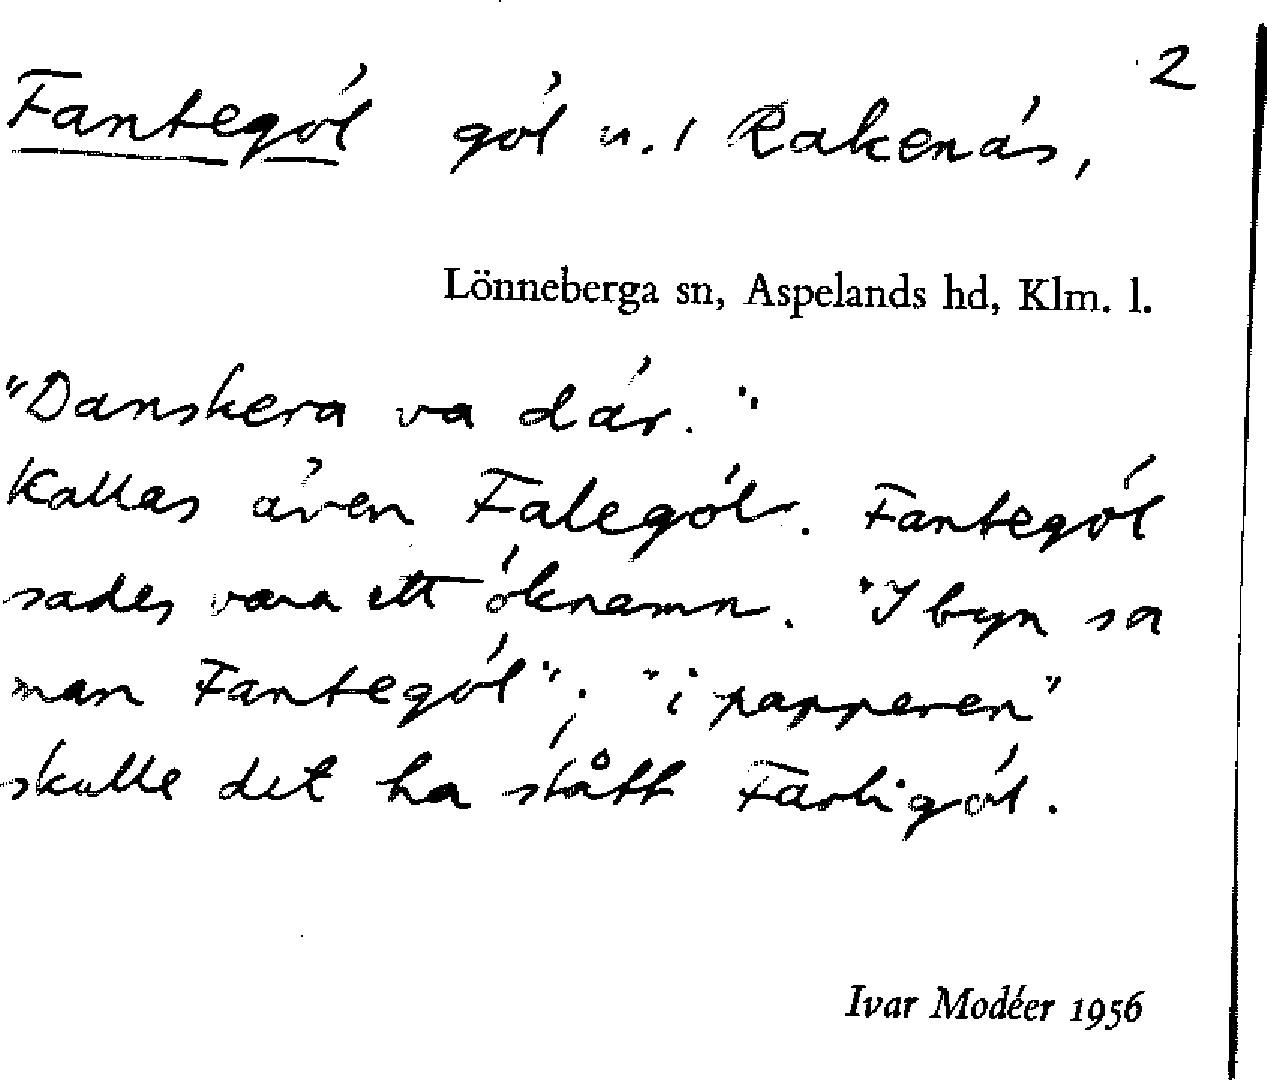 2
Fantegöl göl u. i Rakenäs,
Lönneberga sn, Aspelands hd, Klm. l.
"Danskera va där."
Kallas även Falegöl. Fantegöl
sades vara ett öknamn. "I byn sa
man Fantegöl"; "i papperen"
skulle det ha stått Farligöl.
Ivar Modéer 1956